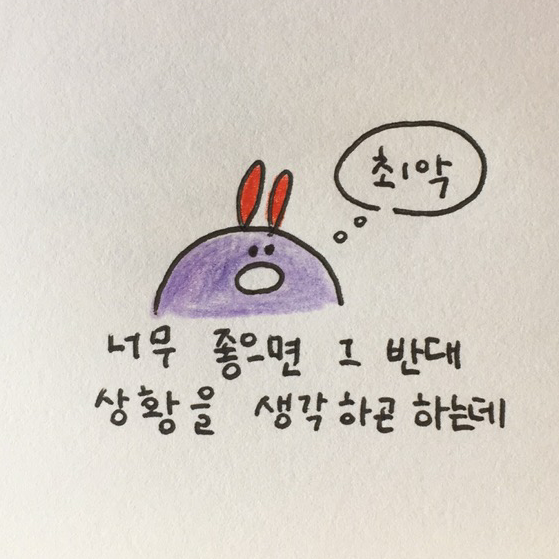 최악
너무 좋으면 그 반대
상황을 생각하곤 하는데